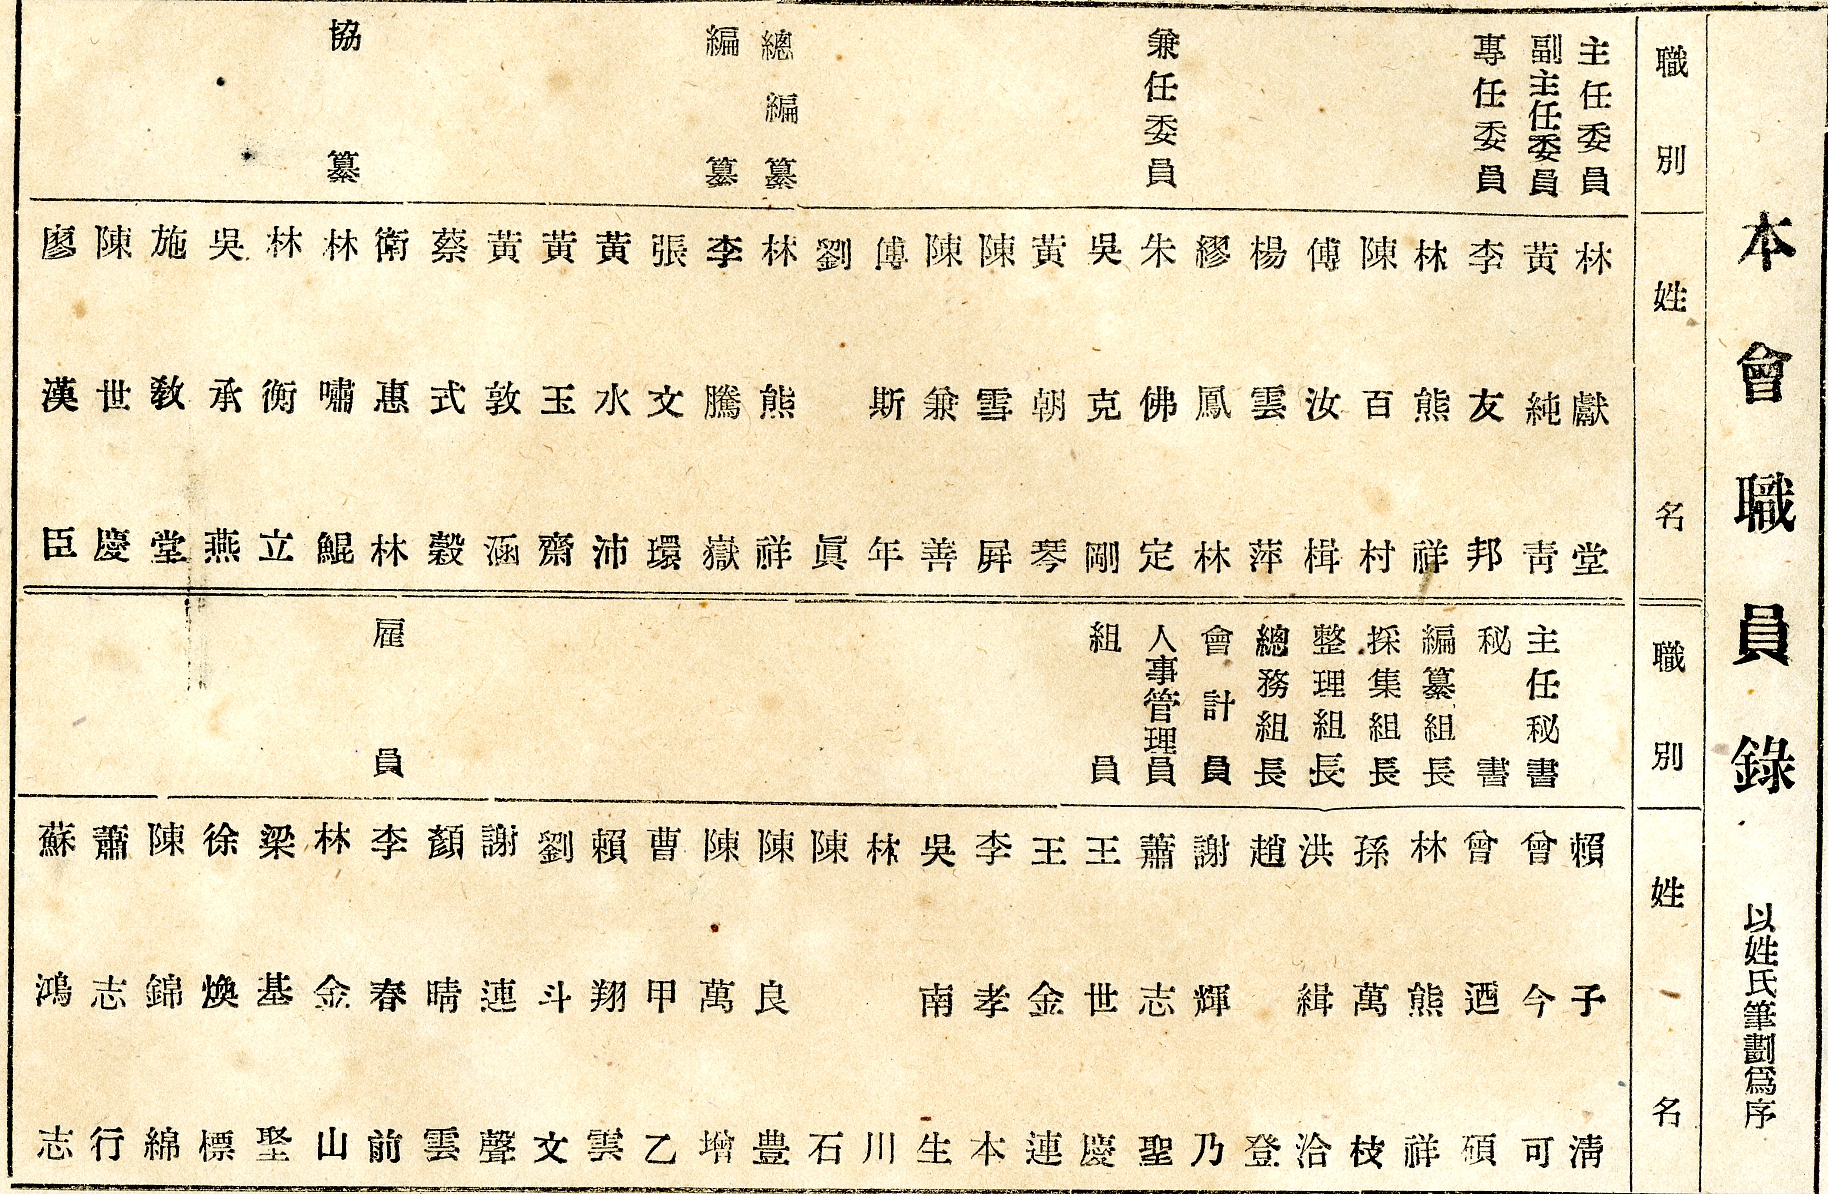 本會職員錄 以姓氏筆劃爲序
職別 姓名
主任委員 林獻堂
副主任委員 黃純靑
專任委員 李友邦
林熊祥
陳百村
傅汝楫
楊雲萍
繆鳳林
兼任委員 朱佛定
吳克剛
黃朝琴
陳雪屛
陳兼善
傅斯年
劉眞
總編纂 林熊祥
編纂 李騰嶽
張文環
黃水沛
黃玉齋
黃敦涵
蔡式穀
衛惠林
協纂 林嘯鯤
林衡立
吳承燕
施敎堂
陳世慶
廖漢臣
職別 姓名
賴子淸
主任秘書 曾今可
秘書 曾迺碩
編纂組長 林熊祥
採集組長 孫萬枝
整理組長 洪緝洽
總務組長 趙登
會計員 謝輝乃
人事管理員 蕭志聖
組員 王世慶
王金連
李孝本
吳南生
林川
陳石
陳良豊
陳萬增
曹甲乙
賴翔雲
劉斗文
謝連聲
顏晴雲
雇員 李春前
林金山
梁基堅
徐煥標
陳錦綿
蕭志行
蘇鴻志